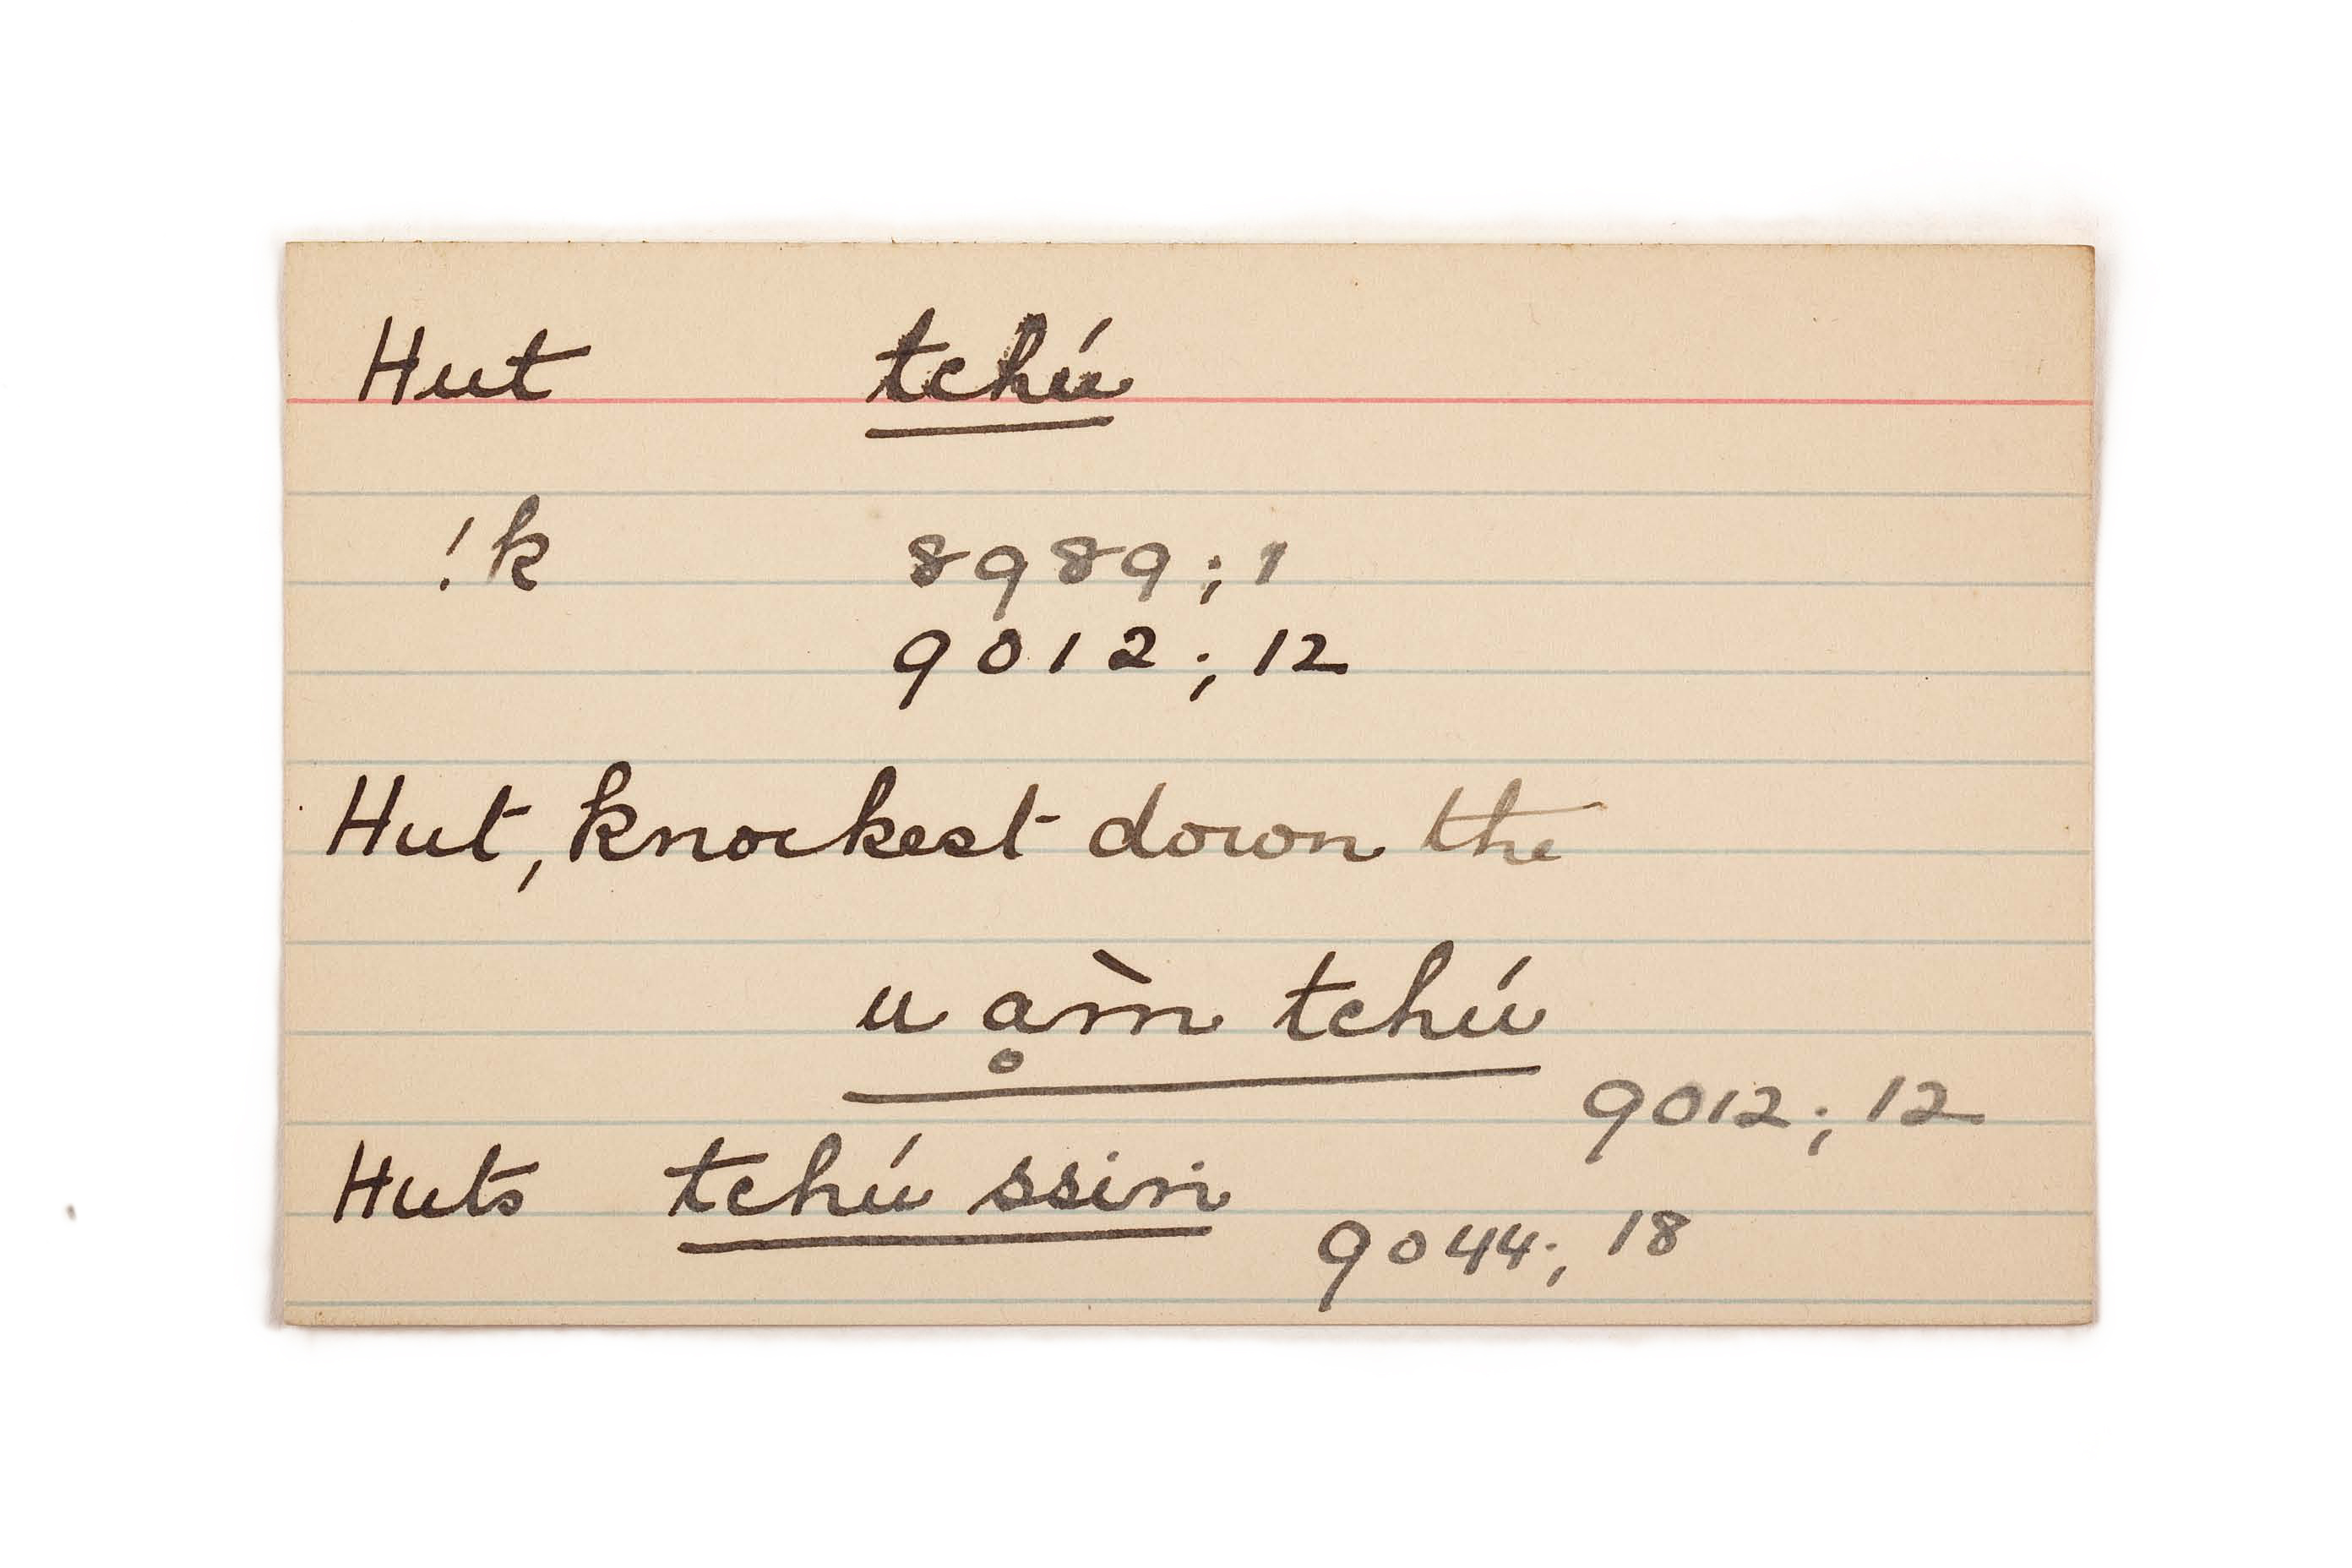 Hut tchú
!k 8989; 1
9012; 12
Hut, knockest down the
u ḁm̀ tchú
9012; 12
Huts tchú ssin
9044; 18